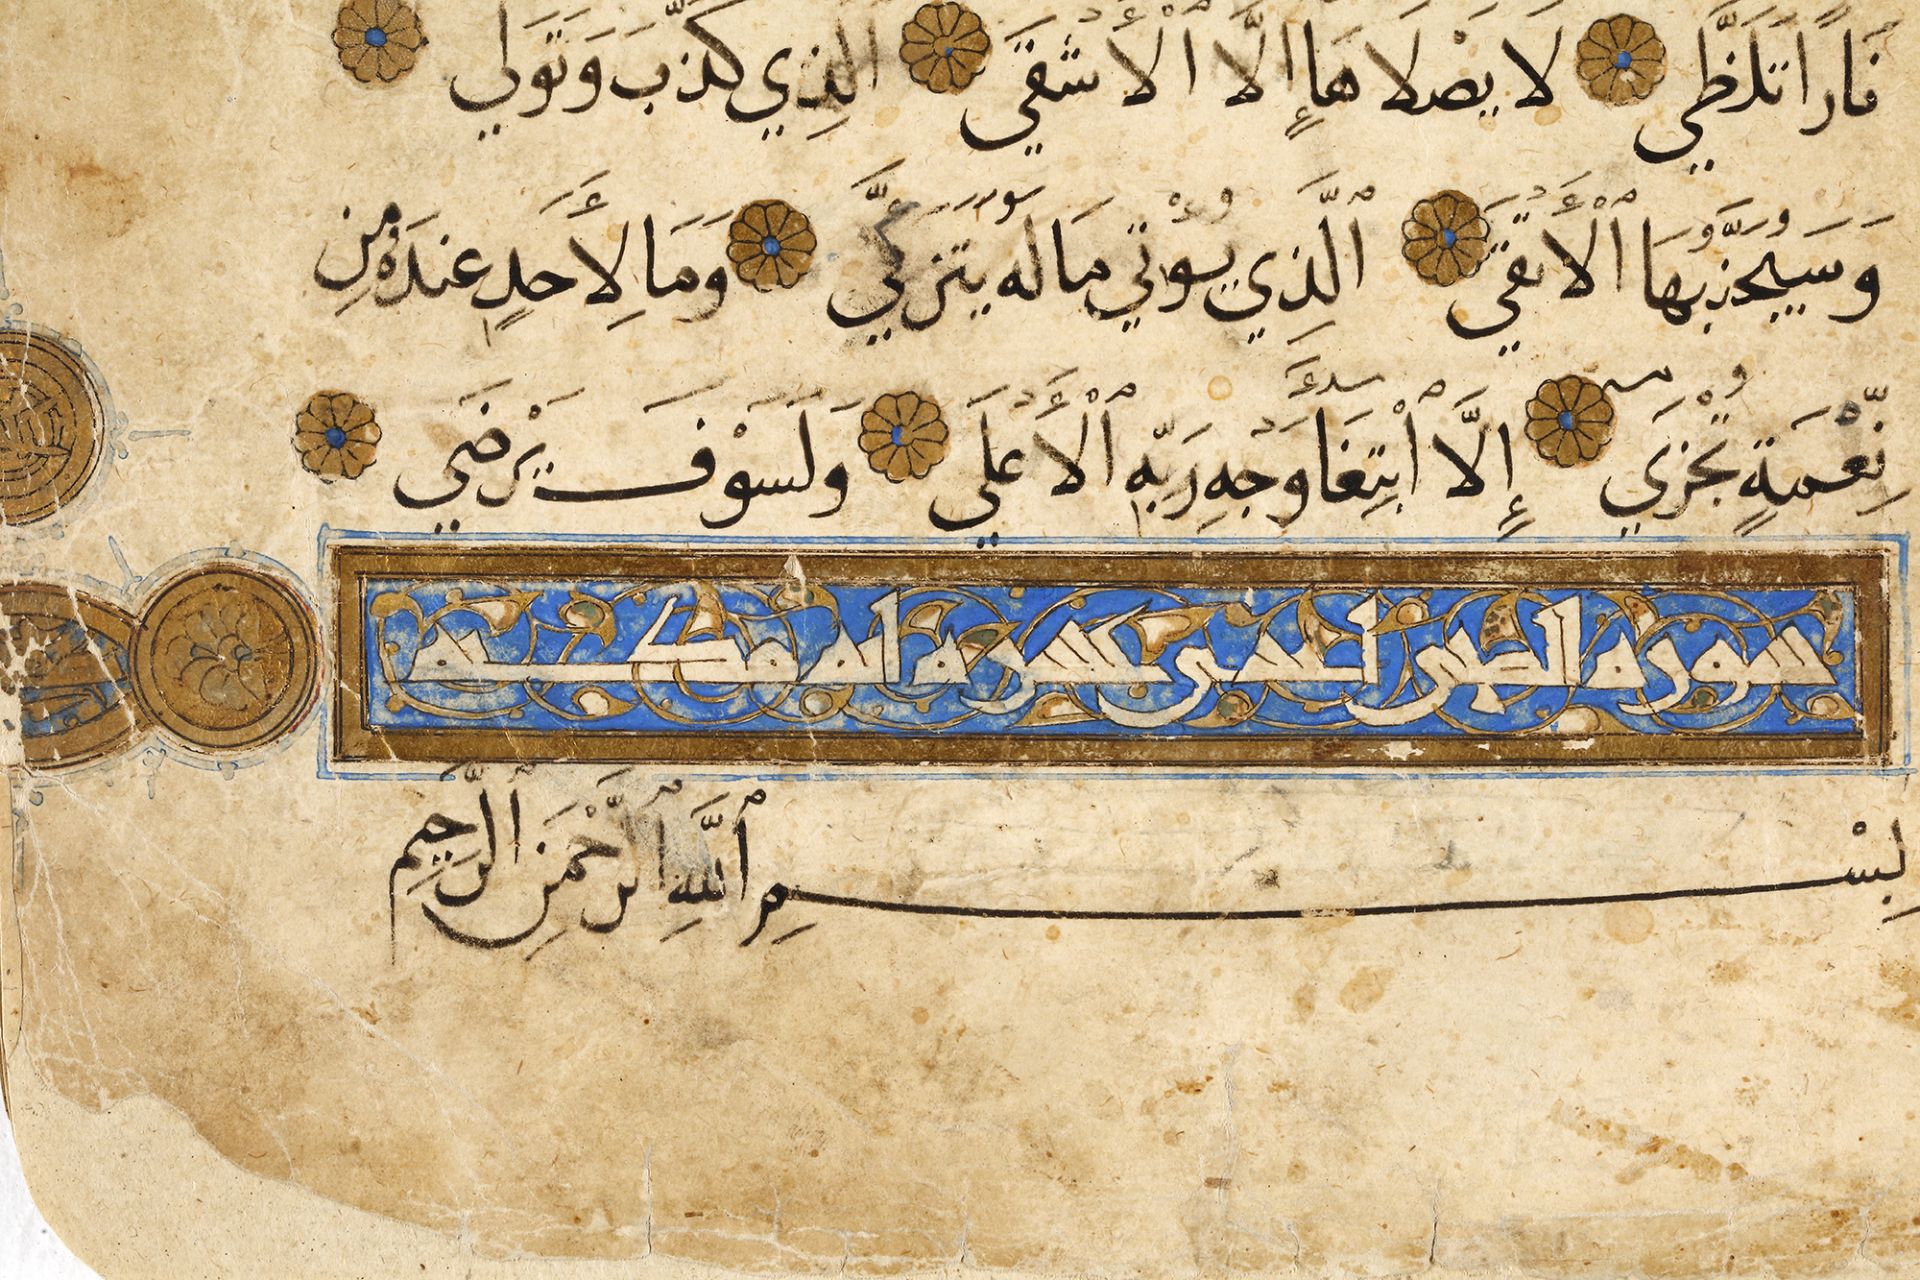 نَارًا تَلَظَّى لَا يَصْلَاهَا إِلَّا ٱلْأَشْقَى ٱلَّذِي كَذَّبَ وَتَوَلَّى
وَسَيُجَنَّبُهَا ٱلْأَتْقَى ٱلَّذِي يُؤْتِي مَالَهُ يَتَزَكَّى وَمَا لِأَحَدٍ عِنْدَهُ مِنْ
نِّعْمَةٍ تُجْزَى إِلَّا ٱبْتِغَاءَ وَجْهِ رَبِّهِ ٱلْأَعْلَى وَلَسَوْفَ يَرْضَى
سوره الضحى احدى عشره ايه مكيه
بِسْمِ ٱللَّهِ ٱلرَّحْمَنِ ٱلرَّحِيمِ